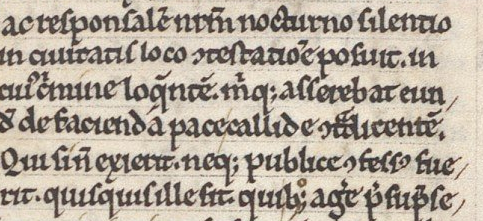 ac responsalē nr̄m nocturno silentio
in ciuitatis loco ꝯtestatiōe posuit. in
cui᷒ c̓mine loq̄ntē. m̄q; asserebat eun/
đ de facienda pace callide ꝯdicentē.
Qui sin̄ exierit. neq; publice ꝯfess᷒ fue/
rit. quisquis ille sit. quib; ag̓e p̄sup̄se/